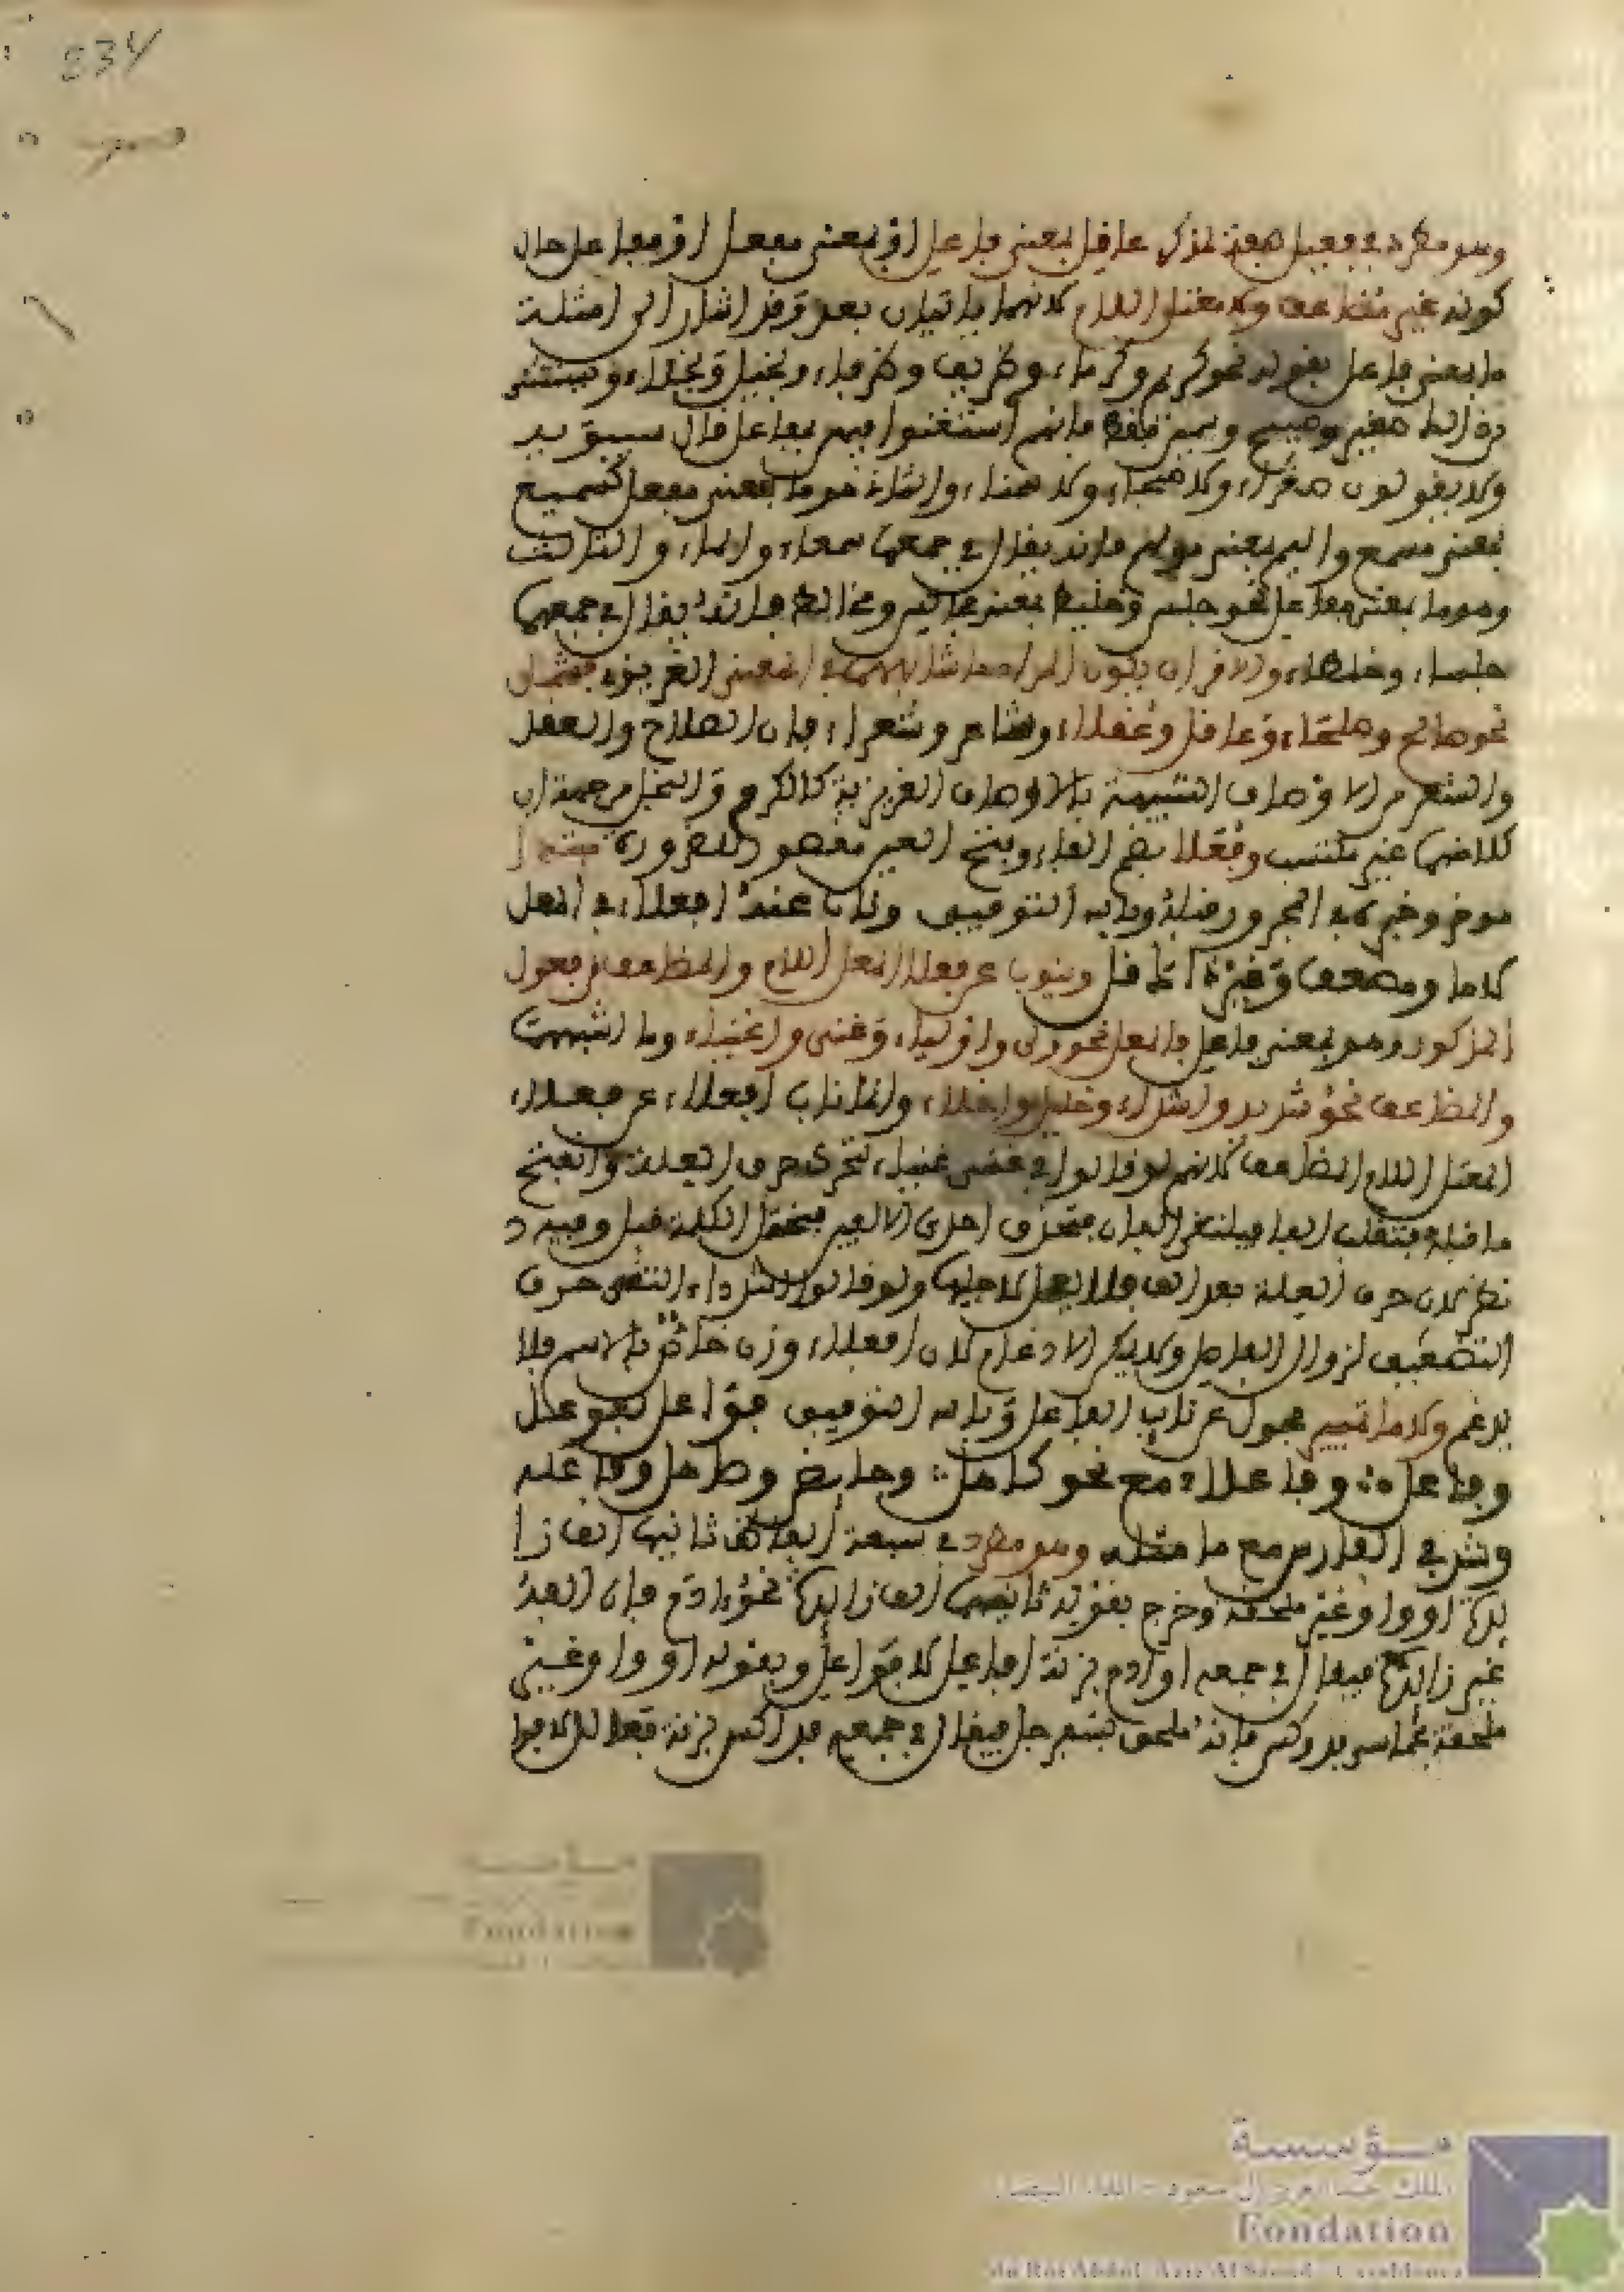 534
وهو مطرد في فعيل صفة لمذكر عاقل بمعنى فاعل أو بمعنى مفعل أو مفاعل حال
كونه غير مضاعف ولا معتل اللام لانهما ياتيان بعد وقد اشار الى امثلة
ما بمعنى فاعل بقوله نحو كريم وكرماء وظريف وظرفاء وبخيل وبخلاء ويستثنى
من ذلك صغير وصبيح وسمين فانهم استغنوا فيهن بفعال قال سيبويه
ولا يقولون صغراء ولا صبحاء ولا سمناء والثاني هو ما بمعنى مفعل كسميع
بمعنى مسمع واليم بمعنى مولم فانه يقال في جمعها سمعاء والماء والثالث
وهو ما بمعنى مفاعل نحو جليس وخليط بمعنى مجالس ومخالط فانه يقال في جمعها
جلساء وخلطاء
نحو صالح وصلحاء وعاقل وعقلاء وشاعر وشعراء فان الصلاح والعقل
والشعر من الاوصاف الشبيهة بالاوصاف الغريزية كالكرم والبخل من جهة ان
كلا منها غير مكتسب وفعلا بضم الفاء وفتح العين مقصور للضرورة مبتدا
موخر وخبره في المجرور قبله وبابه التوقيف وناب عنه افعلاء في المعل
لاما ومضعف وغير ذاك قل وينوب عن فعلاء المعل اللام والمضاعف من فعيل
المذكور وهو بمعنى فاعل فالمعل نحو ولي واولياء وغني واغنياء وما اشبهت
والمضاعف نحو شديد واشداء وخليل واخلاء وانما ناب افعلاء عن فعلاء
المعتل اللام المضاعف لانهم لو قالوا في غني غنياء لتحرك حرف العلة وانفتح
ما قبله فتنقلب الفا فيلتقي الفان فتحذف احدى الالفين فتختل الكلمة قيل وفيه
نظر لان حرف العلة بعد الف فلا يعل لاجلها ولو قالوا شدداء التقى حرف
التضعيف لزوال الفاصل ولا يمكن الادغام لان فعلاء وزن خاص بالاسم فلا
يدغم ولاما تمييز محول عن نائب الفاعل وبابه التوقيف فواعل لفوعل
وفاعل وفاعلاء مع نحو كاهل وحائض وصاهل وفاعله
وشذ في الفارس مع ما ماثله وهو مطرد في سبعة الفاظ ثانيها الف زا
يدة او واو غير ملحقة وخرج بقوله ثانيها الف زائدة نحو ءادم فان الفه
غير زائدة فيقال في جمعه اوادم بزنة افاعل لا فواعل وبقوله او واو غير
ملحقة بخماسي فدوكس فانه ملحق بسفرجل فيقال في جمعه فداكس بزنة فعالل لا فوا
مؤسسة
Fondation
مؤسسة
الملك عبد العزيز آل سعود - الدار البيضاء
Fondation
du Roi Abdul-Aziz Al Saoud - Casablanca